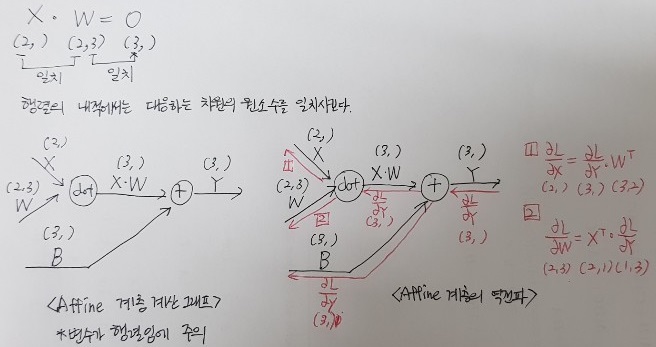 X · W = O
(2, ) (2,3) (3, )
일치 일치
행렬의 내적에서는 대응하는 차원의 원소수를 일치시킨다.
(2,)
X
(2,3)
W
dot
(3, )
X·W
+
(3, )
Y
(3, )
B
<Affine 계층 계산 그래프>
*변수가 행렬임에 주의
(2, )
X
1
(2,3)
W
2
dot
(3, )
X·W
∂L/∂Y
(3, )
+
(3, )
Y
∂L/∂Y
(3, )
(3, )
B
∂L/∂Y
(3, )
<Affine 계층의 역전파>
1 ∂L/∂X = ∂L/∂Y · Wᵀ
(2, ) (3, ) (3,2)
2 ∂L/∂W = Xᵀ · ∂L/∂Y
(2,3) (2,1) (1,3)